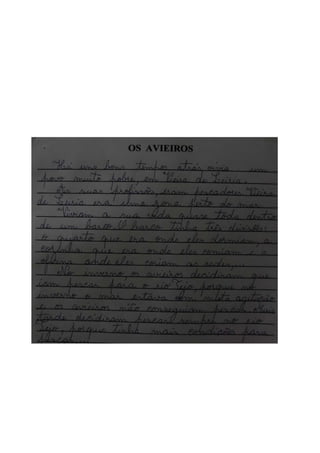 OS AVIEIROS
Há uns bons tempos atrás vivia um
povo muito pobre, em Vieira de Leiria.
As suas profissões, eram pescadores. Vieira
de Leiria era uma zona perto do mar.
Viviam a sua vida quase toda dentro
de um barco. O barco tinha três divisões:
o quarto que era onde eles dormiam, a
cozinha que era onde eles comiam e a
oficina onde eles cosiam as redes.
No inverno, os avieiros decidiram que
iam pescar para o rio Tejo, porque no
inverno o mar estava com muita agitação
e os avieiros não conseguiam pescar. Mais
tarde decidiram pescar sempre no rio
Tejo, porque tinha mais condições para
pescar